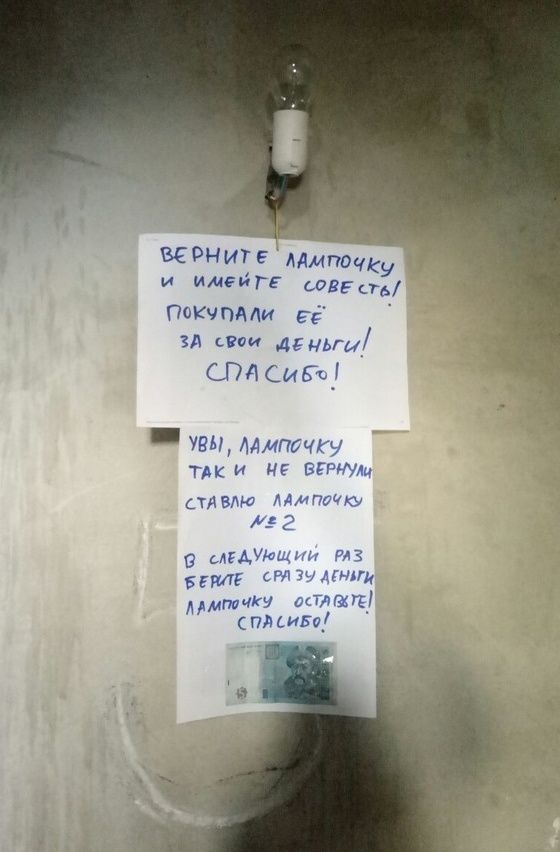 ВЕРНИТЕ ЛАМПОЧКУ
И ИМЕЙТЕ СОВЕСТЬ!
ПОКУПАЛИ ЕЁ
ЗА СВОИ ДЕНЬГИ!
СПАСИБО!
УВЫ, ЛАМПОЧКУ
ТАК И НЕ ВЕРНУЛИ
СТАВЛЮ ЛАМПОЧКУ
№2
В СЛЕДУЮЩИЙ РАЗ
БЕРИТЕ СРАЗУ ДЕНЬГИ
ЛАМПОЧКУ ОСТАВЬТЕ!
СПАСИБО!